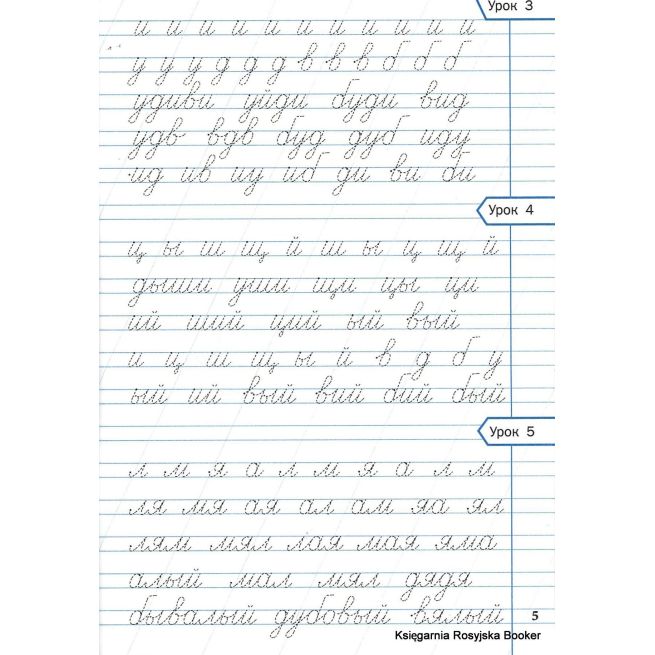 Урок 3
и и и и и и и и и и и
у у у д д д в в в б б б
удиви уйди буди вид
удв вдв буд дуб иду
ид ив иу иб ди ви би
Урок 4
ц ы ш щ й ш ы ц щ й
дыши уши щи цы ци
ий ший ций ый вый
и ц ш щ ы й в д б у
ый ий вый вий бий бый
Урок 5
л м я а л м я а л м
ля мя ая ал ам яа ял
лям мял лая мая яма
алый мал мял дядя
бывалый дубовый вялый
5
Księgarnia Rosyjska Booker